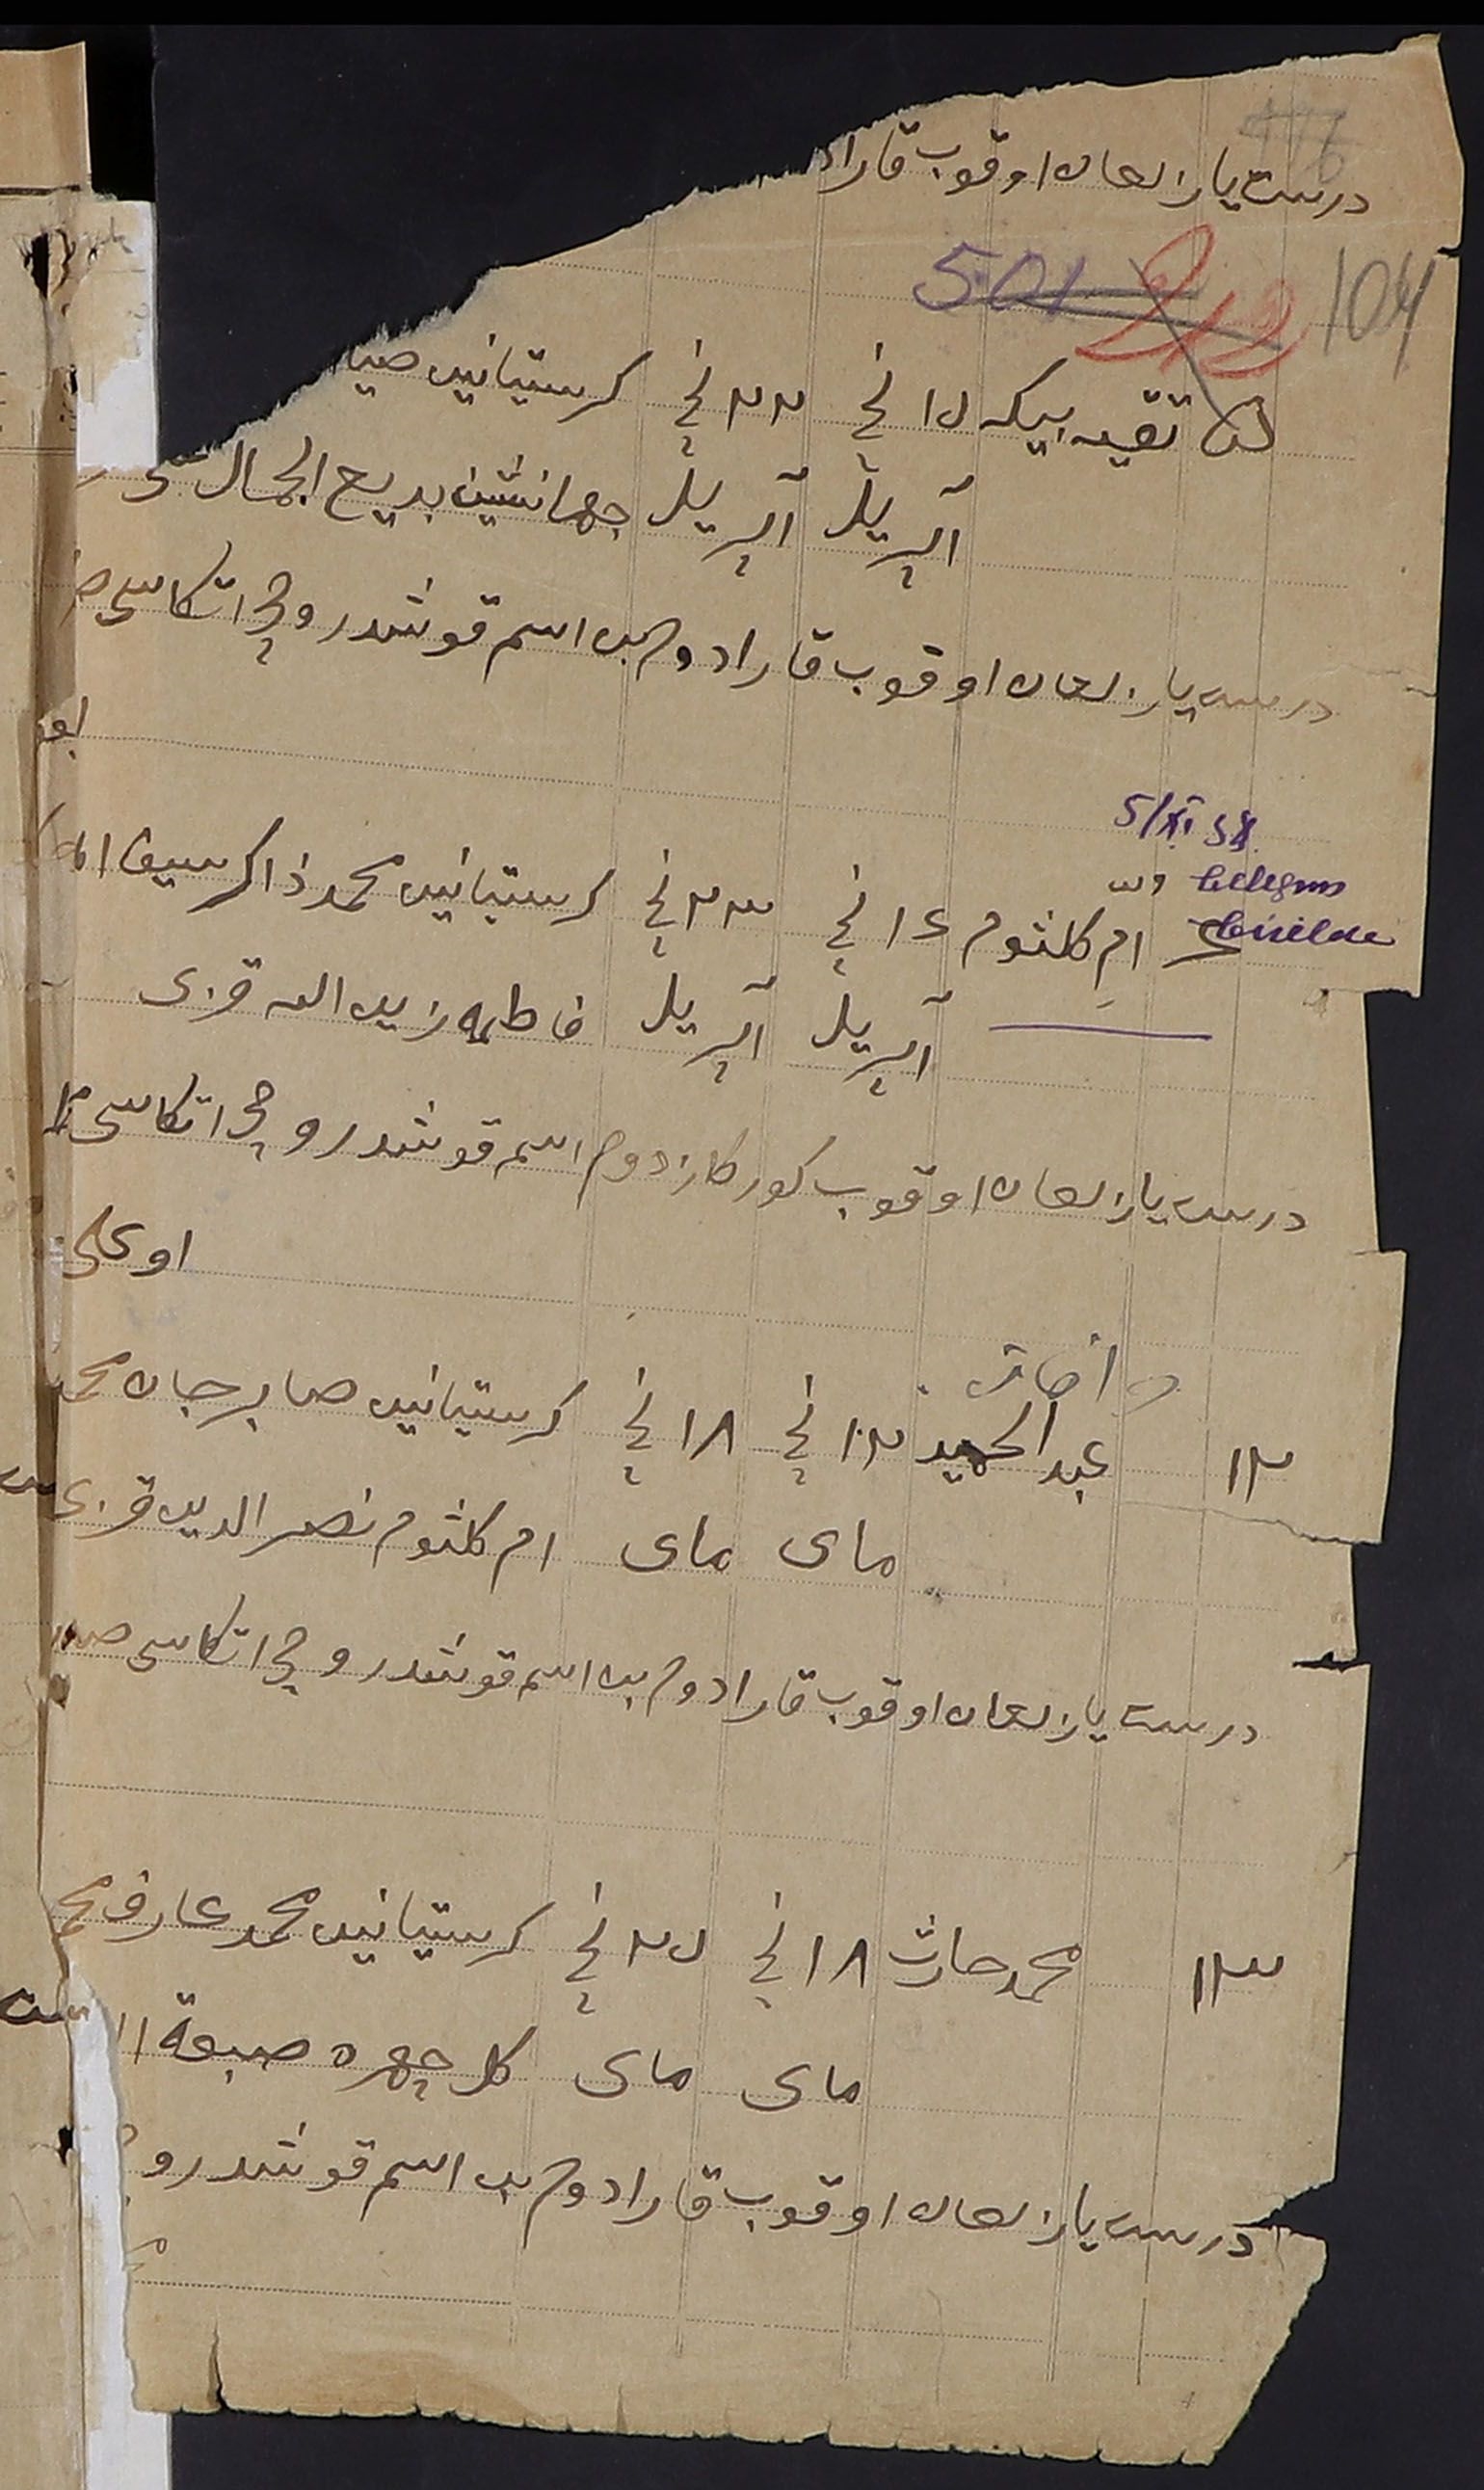 درست یازلغان اوقوب قارادم
501 212 104
تقیه بیکه ١٥ نچی ٢٢ نچی کرستیانین ضیا
آپریل آپریل جهانشین بدیع الجمال
درست یازلغان اوقوب قارادم بن اسم قوشدروچی اتکاسی
5/XI 38
belegnm
birelde
ام کلثوم ١٤ نچی ٢٣ نچی کرستیانین محمد ذاکر سیف
آپریل آپریل فاطمه زین الله قزی
درست یازلغان اوقوب کورکازدوم اسم قوشدروچی اتکاسی
اوغلی
١٢ عبد الحمید ١٢ نچی ١٨ نچی کرستیانین صابرجان محمد
مای مای ام کلثوم نصر الدین قزی
درست یازلغان اوقوب قارادوم بن اسم قوشدروچی اتکاسی
١٣ محمد حارث ١٨ نچی ٢٥ نچی کرستیانین محمد عارف
مای مای کل چهره صبغة
درست یازلغان اوقوب قارادوم بن اسم قوشدرو